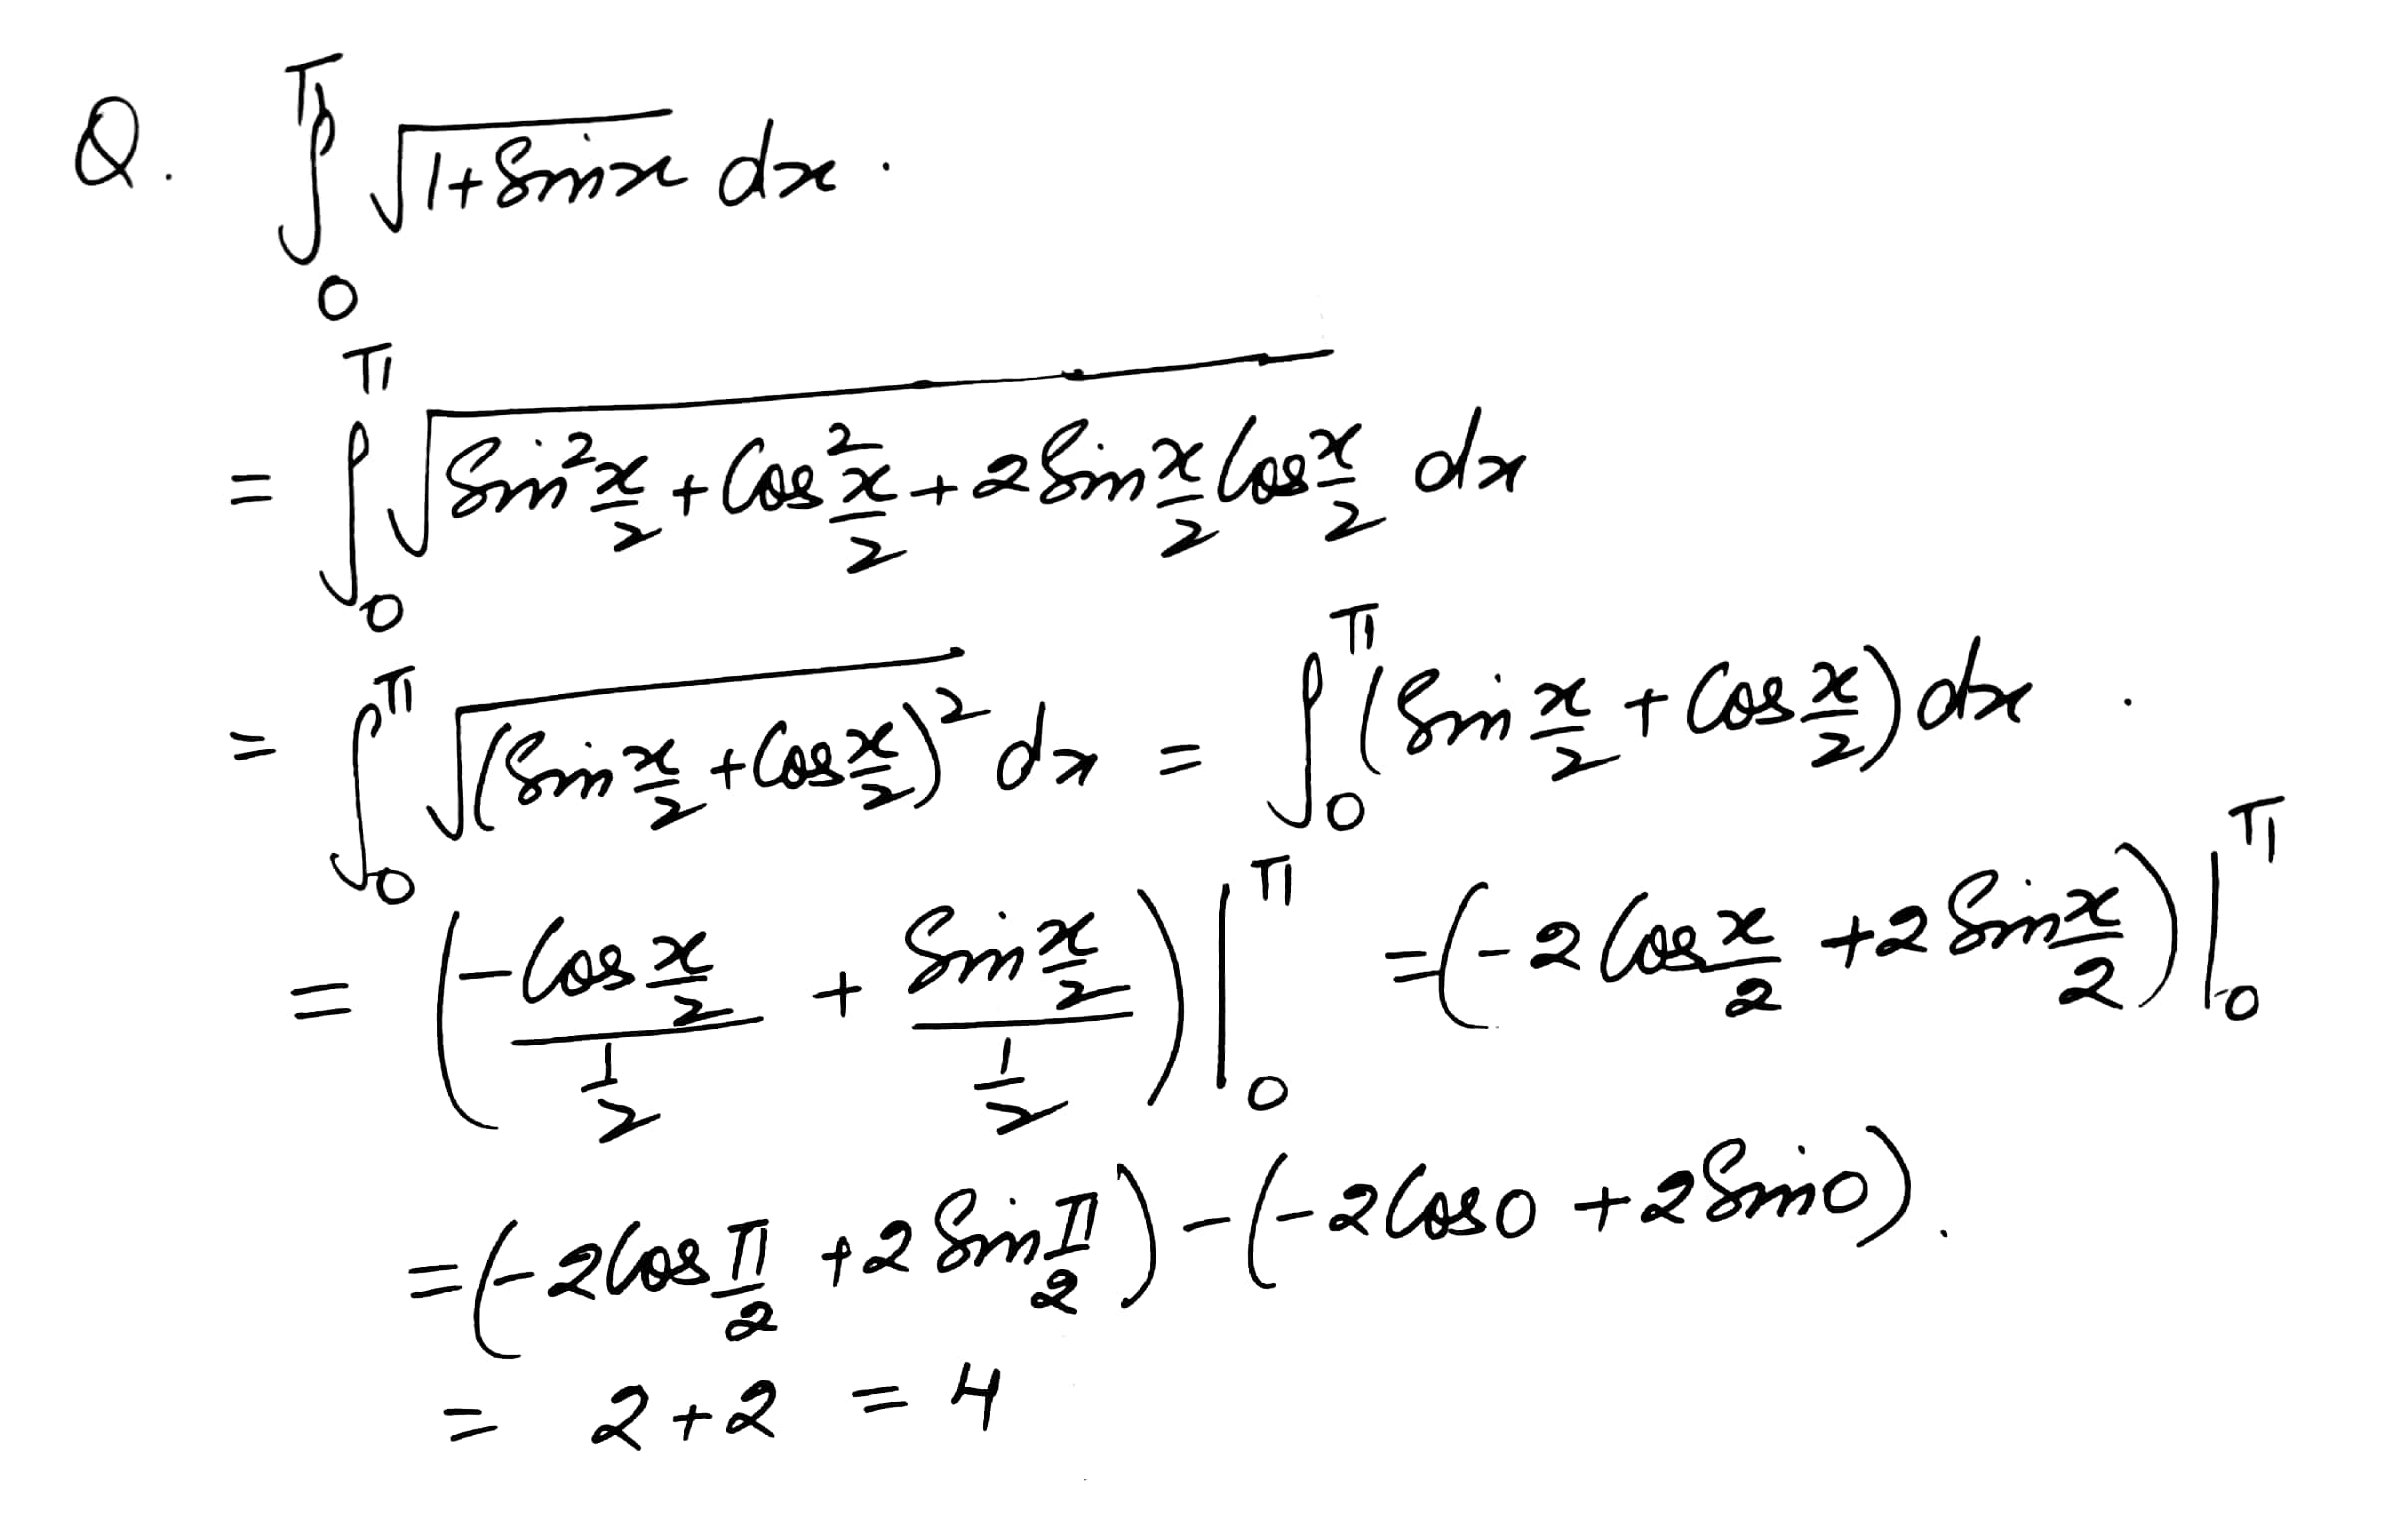 Q. ∫₀^π √(1+Sinx) dx .
= ∫₀^π √(Sin²x/2 + Cos²x/2 + 2Sinx/2 Cosx/2) dx
= ∫₀^π √((Sinx/2 + Cosx/2)²) dx = ∫₀^π (Sin x/2 + Cosx/2) dx .
= ((-Cos x/2)/(1/2) + (Sin x/2)/(1/2)) |₀^π = (-2Cosx/2 + 2Sinx/2) |₀^π
= (-2Cosπ/2 + 2Sinπ/2) - (-2Cos0 + 2Sin0).
= 2+2 = 4